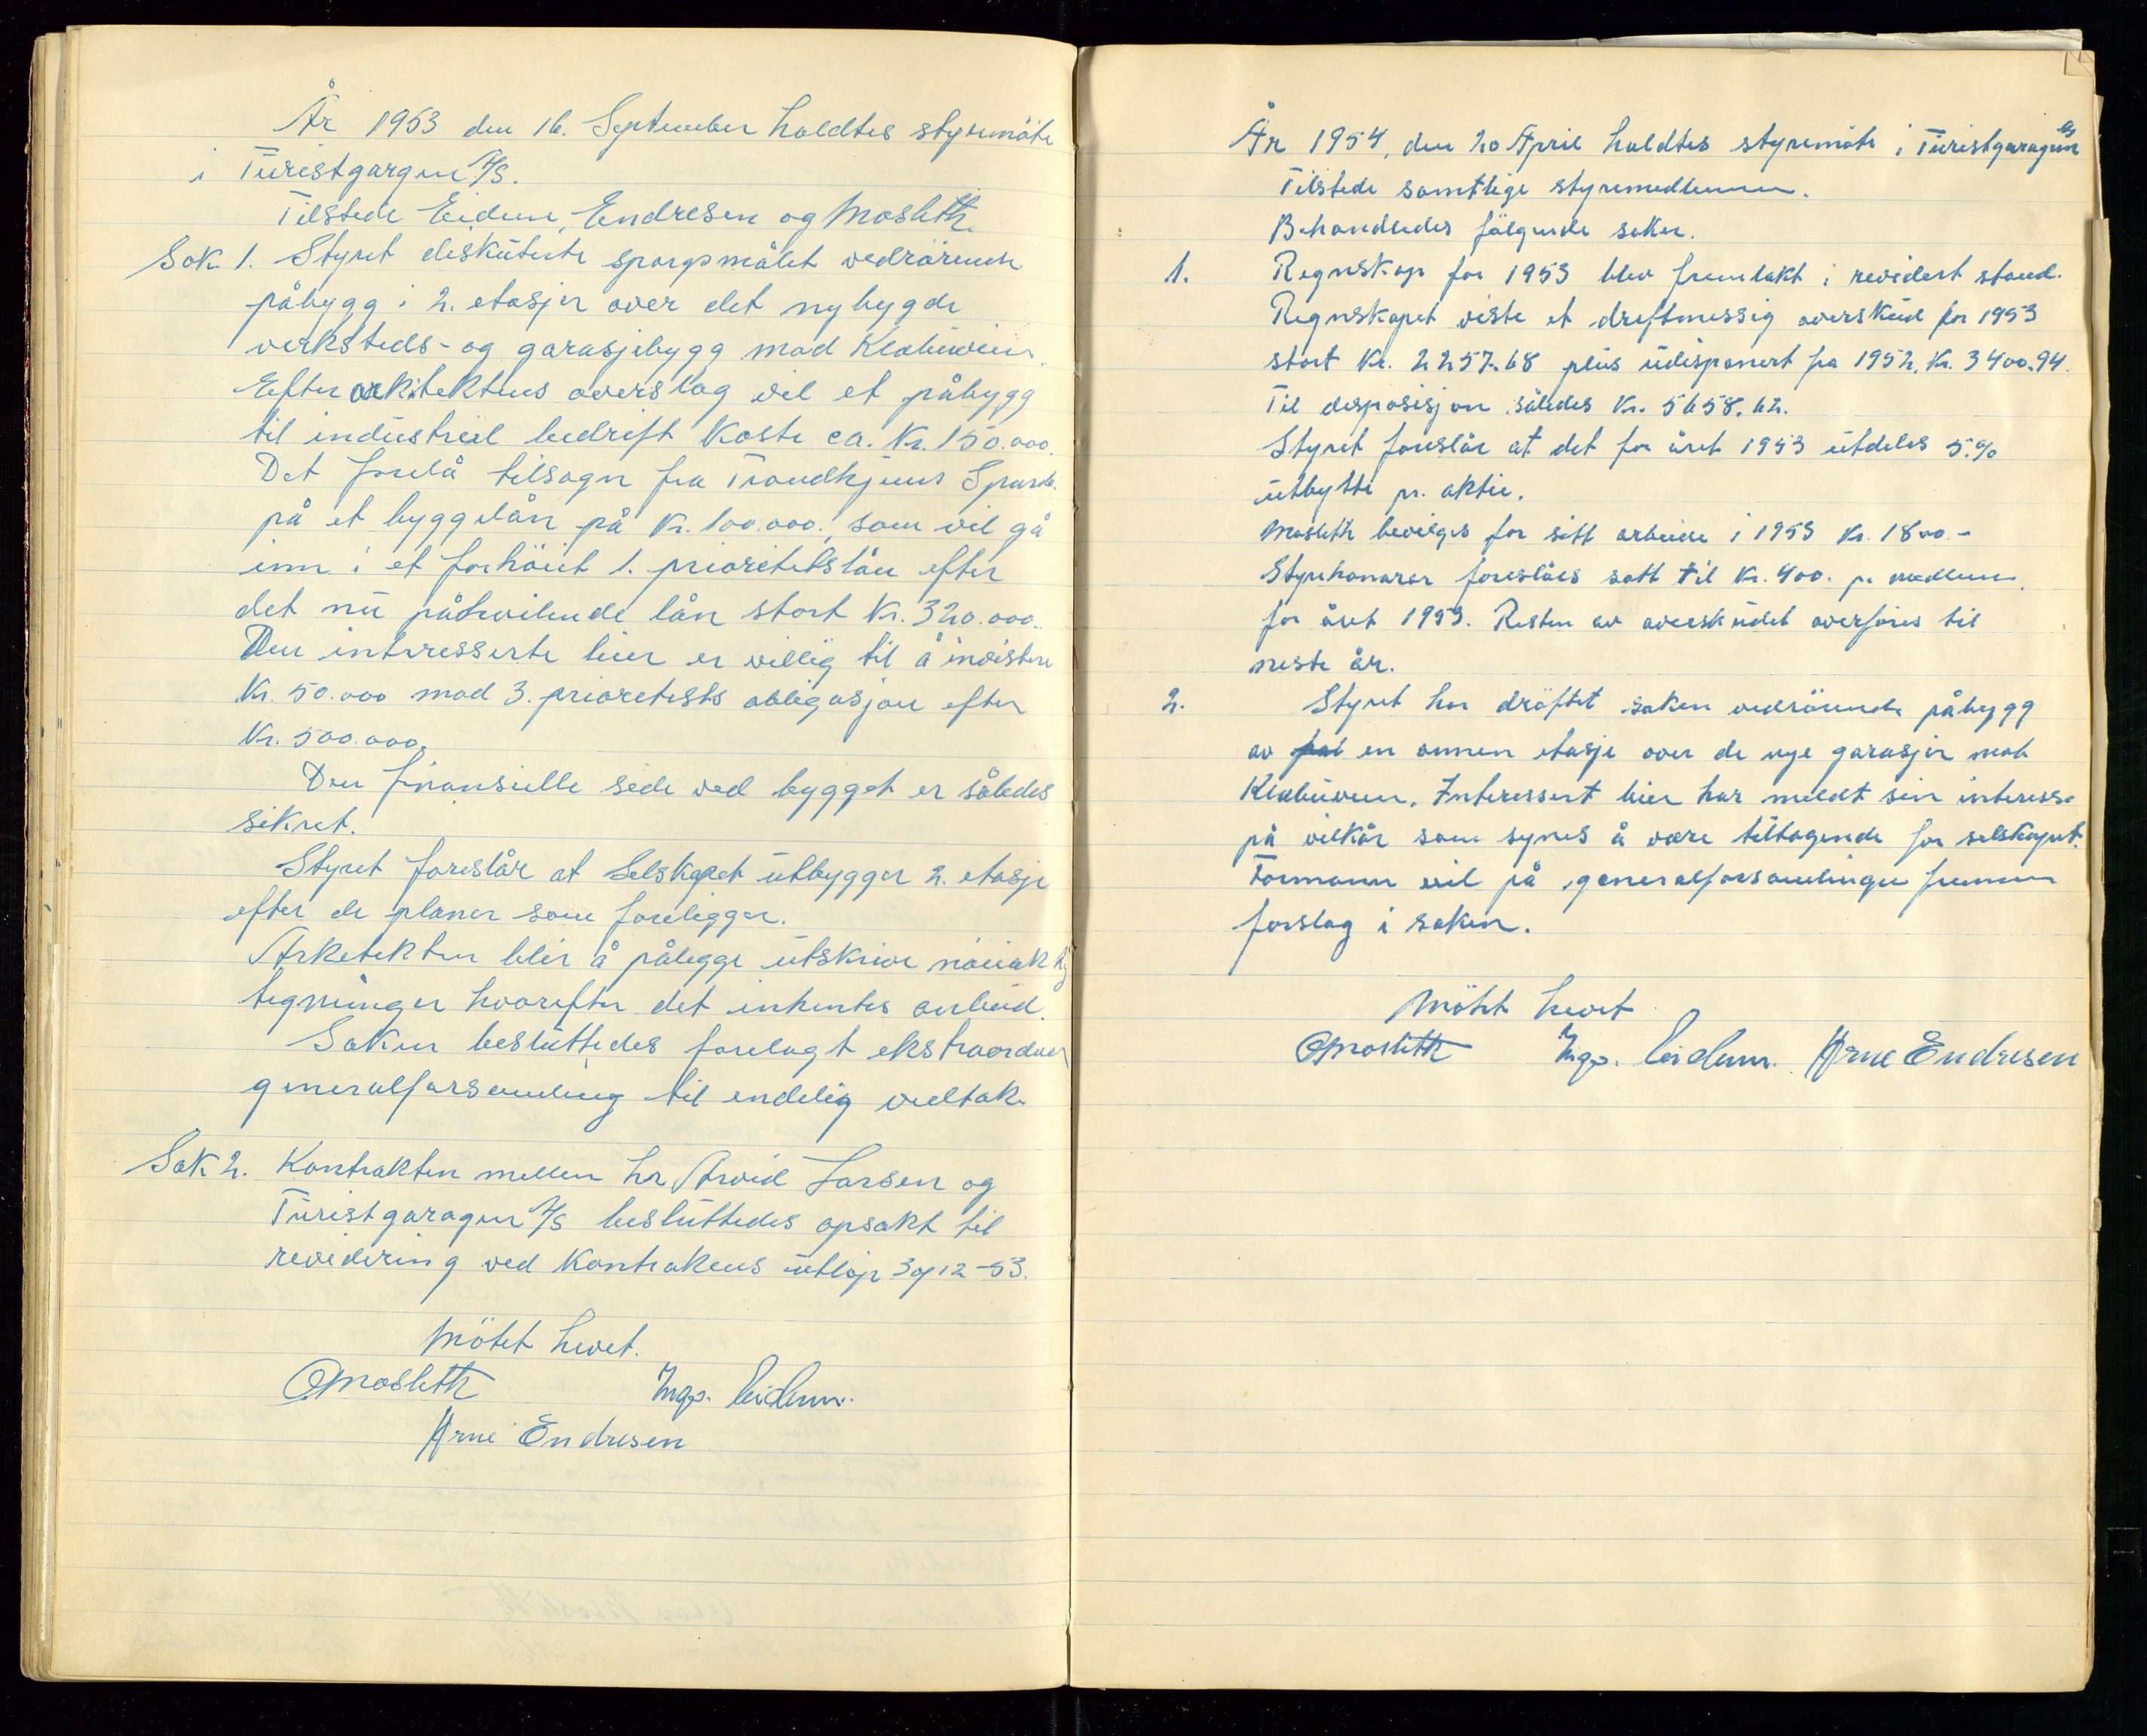 År 1953 den 16. September holdtes styremöte
i Turistgargen A/S.
Tilstede Eidum, Endresen og Mosleth.
Sak 1. Styret diskuterte spørgsmålet vedrörende
påbygg i 2. etasjer over det nybygde
verksteds- og garasjebygg mod Klabuveien.
Efter arkitektens overslag vil et påbygg
til industriel bedrift koste ca. Kr. 150.000.
Det forelå tilsagn fra Trondhjems Spareb.
på et byggelån på Kr. 100.000., som vil gå
inn i et forhöiet 1. prioritetslån efter
det nu påhvilende lån stort Kr. 320.000.
Den interesserte leier er villig til å investere
Kr. 50.000 mod 3. prioritets obligasjon efter
Kr. 500.000.
Den finansielle side ved bygget er således
sikret.
Styret foreslår at Selskapet utbygger 2. etasje
efter de planer som foreligger.
Arketekten blir å pålegge utskrive nöiaktig
tegninger hvorefter det inhentes anbud.
Saken besluttedes forelagt ekstraordnær
generalforsamling til endelig vedtak
Sak 2. Kontrakten mellem hr Arvid Larsen og
Turistgaragen A/S besluttedes opsakt til
revidering ved kontrakens utløp 30/12-53.
Mötet hevet.
O Mosleth Ingv. Eidum.
Arne Endresen
År 1954, den 20 April holdtes styremöte i Turistgaragen A/S
Tilstede samtlige styremedlemmer.
Behandledes fölgende saker.
1. Regnskap for 1953 blev fremlakt i revidert stand.
Regnskapet viste et driftmessig overskud for 1953
stort Kr. 2257.68 plus udisponert fra 1952, Kr. 3400.94.
Til disposisjon således Kr. 5658.62.
Styret foreslår at det for året 1953 utdeles 5.%
utbytte pr. aktie.
Mosleth bevilges for sitt arbeide i 1953 Kr. 1800.-
Styrehonorar foreslåes satt til Kr. 400. pr medlem.
for året 1953. Resten av overskudet overföres til
neste år.
2. Styret har dröftet saken vedrörende påbygg
av en annen etasje over de nye garasjer mot
Klabuveien. Interessert leier har meldt sin interesse
på vilkår som synes å være tiltagende for selskapet.
Formann vil på generalforsamlingen fremme
forslag i saken.
Mötet hevet
O Mosleth Ingv. Eidum. Arne Endresen